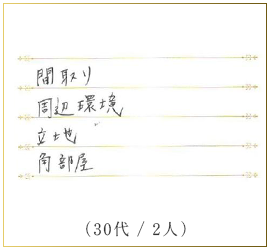 間取り
周辺環境
立地
角部屋
(30代 / 2人)